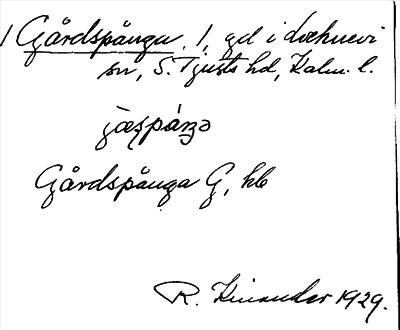 Gårdspånga 1, gd i Lofta
sn, S. Tjusts hd, Kalm. l.
jæspáŋə
Gårdspånga G, hb
R. Kinander 1929.